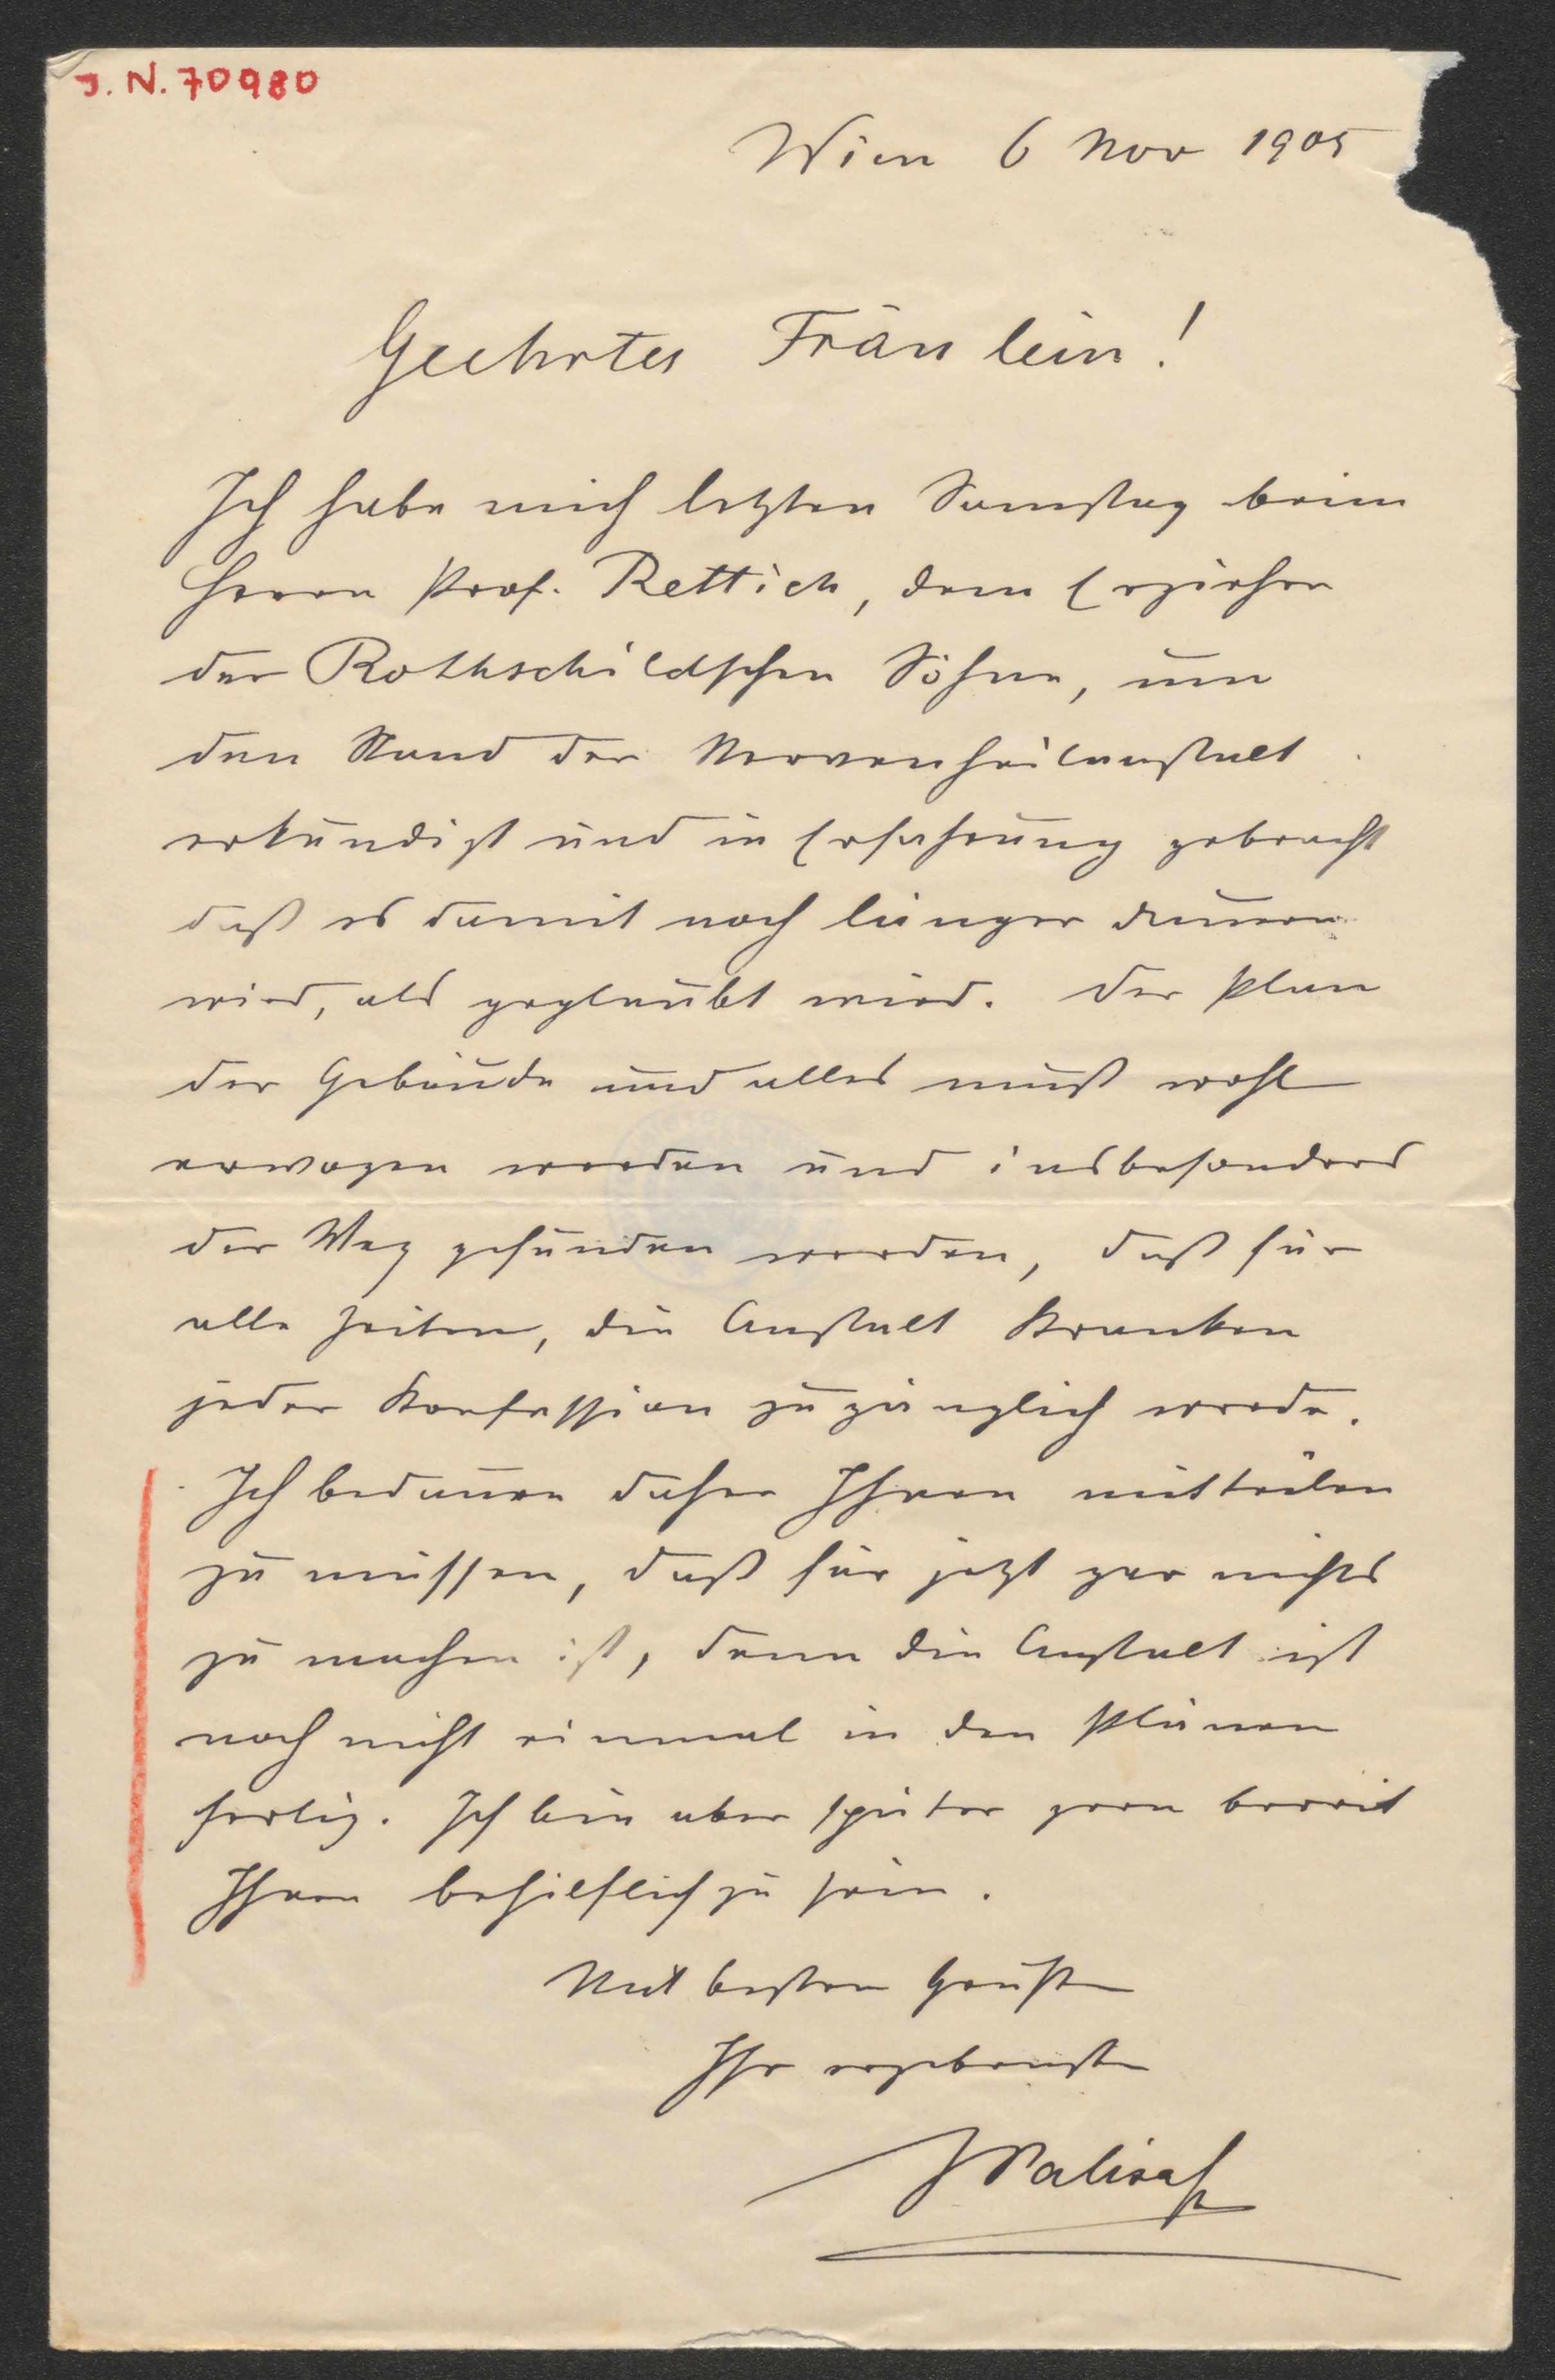 J. N. 70980
Wien 6 Nov 1905
Geehrtes Fräulein!
Ich habe mich letzten Samstag beim
Herrn Prof. Rettich, dem Erzieher
der Rothschildschen Söhne, um
den Stand der Nervenheilanstalt
erkundigt und in Erfahrung gebracht
daß es damit noch länger dauern
wird, als geglaubt wird. Der Plan
der Gebäude und alles muß wohl
erwogen werden und insbesonders
der Weg gefunden werden, daß für
alle Zeiten, die Anstalt Kranken
jeder Konfession zugänglich werde.
Ich bedauere daher Ihnen mitteilen
zu müssen, daß für jetzt gar nichts
zu machen ist, denn die Anstalt ist
noch nicht einmal in den Plänen
fertig. Ich bin aber später gern bereit
Ihnen behilflich zu sein.
Mit besten Grüßen
Ihr ergebenster
J Palisa